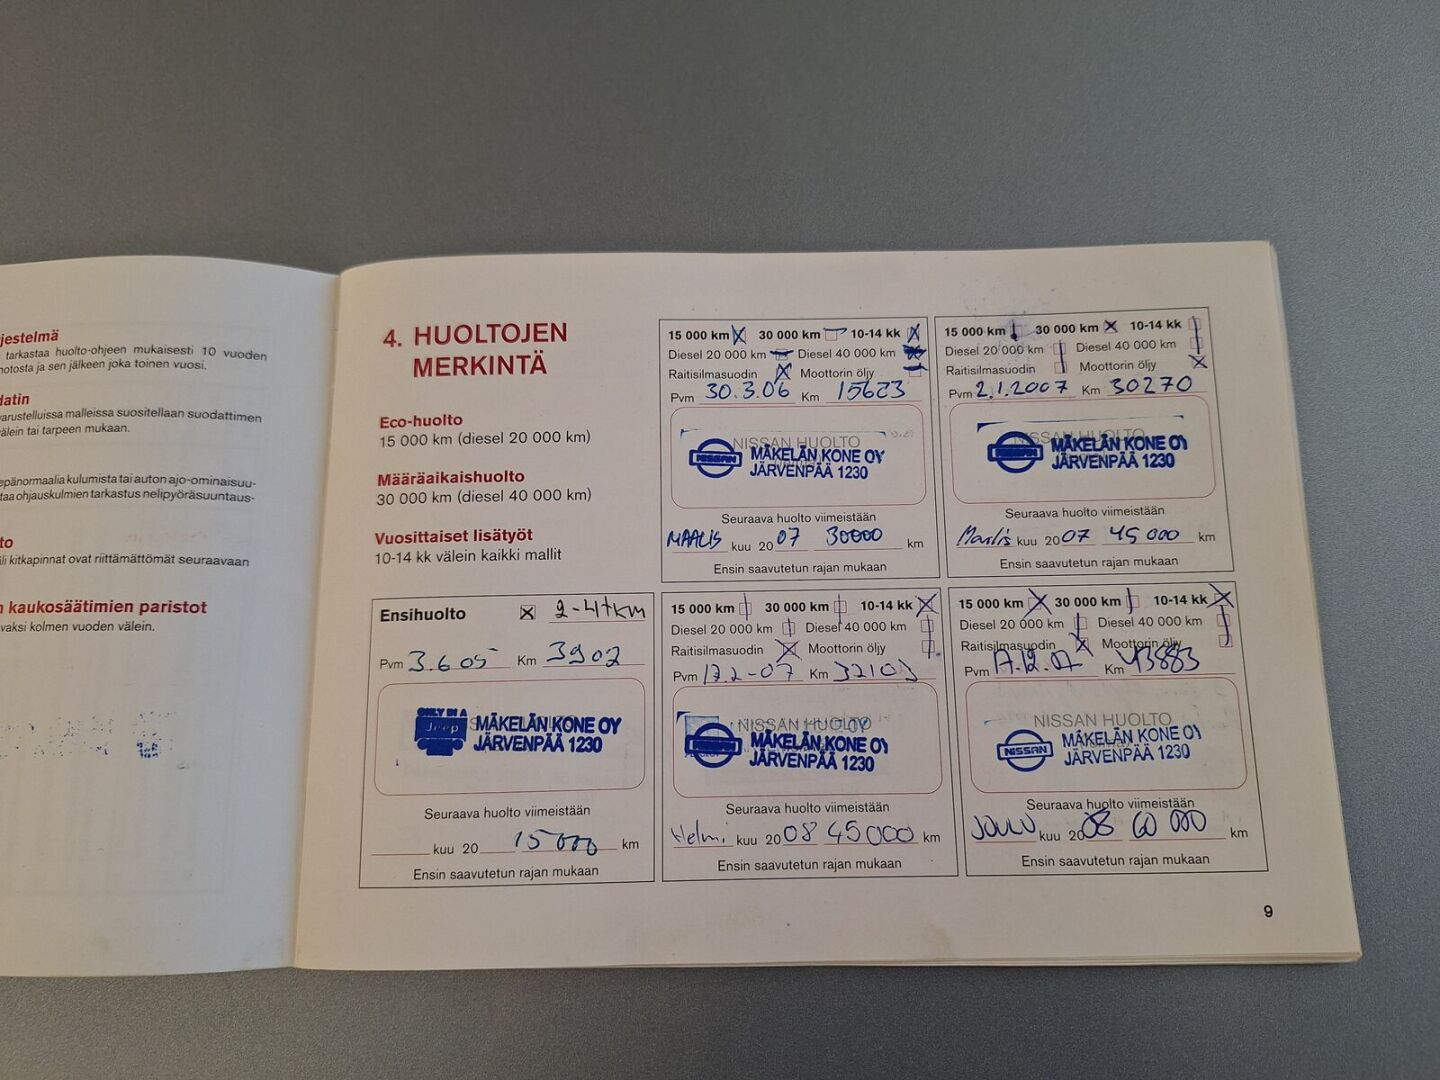 jestelmä
tarkastaa huolto-ohjeen mukaisesti 10 vuoden
otosta ja sen jälkeen joka toinen vuosi.
datin
varustelluissa malleissa suositellaan suodattimen
välein tai tarpeen mukaan.
epänormaalia kulumista tai auton ajo-ominaisuu-
taa ohjauskulmien tarkastus nelipyöräsuuntaus-
to
li kitkapinnat ovat riittämättömät seuraavaan
n kaukosäätimien paristot
vaksi kolmen vuoden välein.
4. HUOLTOJEN
MERKINTÄ
Eco-huolto
15 000 km (diesel 20 000 km)
Määräaikaishuolto
30 000 km (diesel 40 000 km)
Vuosittaiset lisätyöt
10-14 kk välein kaikki mallit
15 000 km 30 000 km 10-14 kk
Diesel 20 000 km Diesel 40 000 km
Raitisilmasuodin Moottorin öljy
Pvm 30.3.06 Km 15623
NISSAN HUOLTO
NISSAN MÄKELÄN KONE OY
JÄRVENPÄÄ 1230
Seuraava huolto viimeistään
MAALIS kuu 2007 30000 km
Ensin saavutetun rajan mukaan
15 000 km 30 000 km 10-14 kk
Diesel 20 000 km Diesel 40 000 km
Raitisilmasuodin Moottorin öljy
Pvm 2.1.2007 Km 30270
NISSAN MÄKELÄN KONE OY
JÄRVENPÄÄ 1230
Seuraava huolto viimeistään
Maalis kuu 2007 45 000 km
Ensin saavutetun rajan mukaan
Ensihuolto 2-4tkm
Pvm 3.6 05 Km 3902
ONLY IN A
Jeep MÄKELÄN KONE OY
JÄRVENPÄÄ 1230
Seuraava huolto viimeistään
kuu 20 15000 km
Ensin saavutetun rajan mukaan
15 000 km 30 000 km 10-14 kk
Diesel 20 000 km Diesel 40 000 km
Raitisilmasuodin Moottorin öljy
Pvm 17.2-07 Km 32103
NISSAN HUOLTO
NISSAN MÄKELÄN KONE OY
JÄRVENPÄÄ 1230
Seuraava huolto viimeistään
Helmi kuu 2008 45000 km
Ensin saavutetun rajan mukaan
15 000 km 30 000 km 10-14 kk
Diesel 20 000 km Diesel 40 000 km
Raitisilmasuodin Moottorin öljy
Pvm 17.12.07 Km 43883
NISSAN HUOLTO
NISSAN MÄKELÄN KONE OY
JÄRVENPÄÄ 1230
Seuraava huolto viimeistään
JOULU kuu 2008 60 000 km
Ensin saavutetun rajan mukaan
9